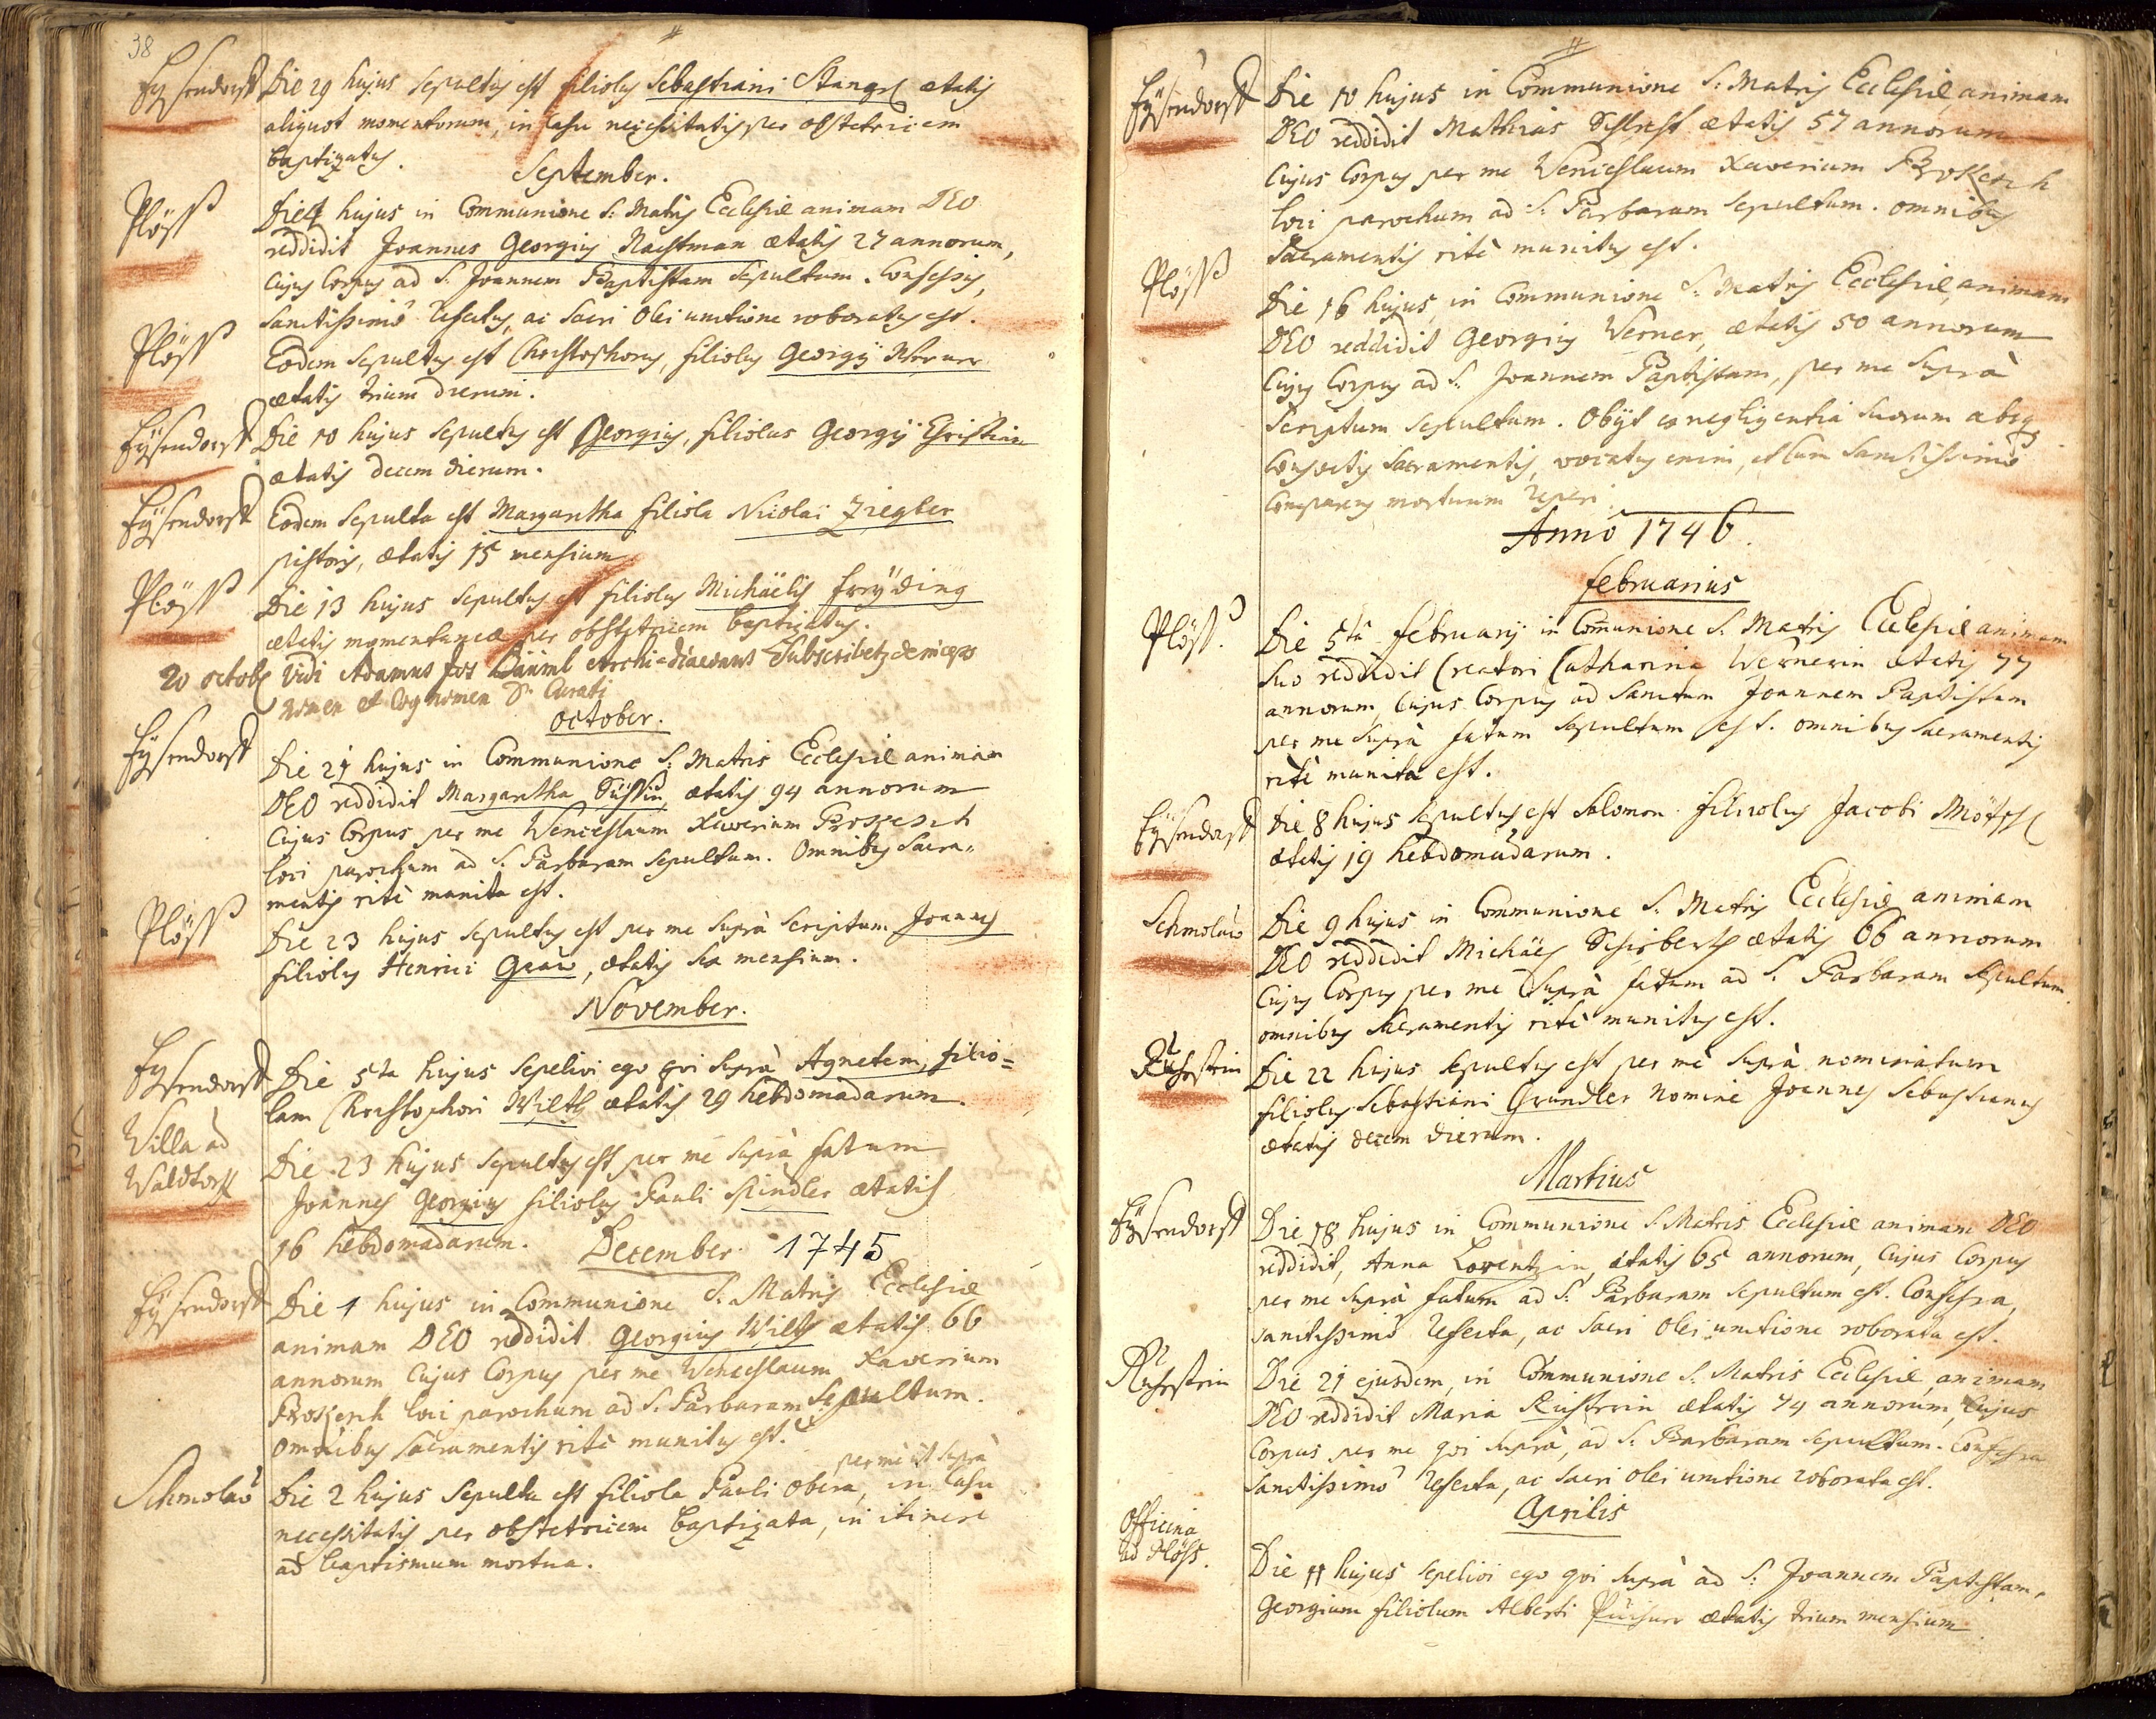 38
Eysendorff Die 29 hujus sepultus est filiolus Sebastiani Stangl ætatis
aliquot momentorum, in casu necessitatis per obstetricem
baptizatus.
September.
Plöss Die 4 hujus in Communione S: Matris Ecclesiæ animam DEO
reddidit Joannes Georgius Nachtman ætatis 27 annorum,
cujus Corpus ad S. Joannem Baptistam sepultum. Confessus,
Sanctissimô refectus, ac sacri Olei unctione roboratus est.
Plöss Eodem sepultus est Christophorus, filiolus Georgÿ Werner
ætatis trium dierum.
Eÿsendorff Die 10 hujus sepultus est Georgius, filiolus Georgÿ Christian
ætatis decem dierum.
Eÿsendorff Eodem sepulta est Margaretha filiola Nicolai Ziegler
pistoris, ætatis 15 mensium
Plöss Die 13 hujus sepultus est filiolus Michaëlis Freÿding
ætatis momentaneæ per obstetricem baptizatus.
20 octobr vidi Adamus Jos Bäüml Archi-Diaconus Subscribetz deinceps
nomen et Cognomen D. Curati
October.
Eÿsendorff Die 21 hujus in Communione S: Matris Ecclesiæ animam
DEO reddidit Margaretha Süssin, ætatis 94 annorum
cujus Corpus per me Wenceslaum Xaverium Prokesch
loci parochum ad S. Barbaram sepultum. Omnibus Sacra-
mentis ritè munita est.
Plöss Die 23 hujus sepultus est per me suprà scriptum Joannes
filiolus Henrici Graw, ætatis sex mensium.
November.
Eysendorff Die 5ta hujus sepelivi ego qvi suprà Agnetem, filio=
lam Christophori Wilth ætatis 29 hebdomadarum.
Villa ad
Waldtorff
Die 23 hujus sepultus est per me suprà fatum
Joannes Georgius filiolus Pauli Pindler ætatis
16 hebdomadarum. December 1745
Eÿsendorff Die 1 hujus in Communione S. Matris Ecclesiæ
animam DEO reddidit Georgius Wilth ætatis 66
annorum cujus Corpus per me Wenceslaum Xaverium
Prokesch loci parochum ad S. Barbaram sepultum.
omnibus sacramentis ritè munitus est.
per mè ut suprà
Schmolaw Die 2 hujus sepulta est filiola Pauli Obera, in casu
necessitatis per obstetricem baptizata, in itinere
ad baptismum mortua.
Eÿsendorff Die 10 hujus in Communione S: Matris Ecclesiæ, animam
DEO reddidit Mathias ætatis 57 annorum
Cujus Corpus per me Wenceslaum Xaverium Prokesch
loci parochum ad S. Barbaram sepultum. omnibus
Sacramentis ritè munitus est.
Plöss Die 16 hujus, in Communione S. Matris Ecclesiæ, animam
DEO reddidit Georgius Werner, ætatis 50 annorum
Cujus Corpus ad S. Joannem Baptistam, per me suprà
Scriptum sepultum. Obÿt ex negligentia suorum absq
consvetis sacramentis, vocatus enim, et cum Sanctissimô
comparens mortuum reperi
Anno 1746.
Februarius
Plöss. Die 5ta Februarÿ in Com̄unione S. Matris Ecclesiæ animam
suo reddidit Creatori Catharina Wernerin ætatis 77
annorum, cujus Corpus ad Sanctum Joannem Baptistam
per me suprà fatum sepultum est. omnibus sacramentis
ritè munita est.
Eÿsendorff Die 8 hujus sepultus est Salomon filiolus Jacobi Mötschl
ætatis 19 hebdomadarum.
Schmolaw Die 9 hujus in Communione S. Matris Ecclesiæ animam
DEO reddidit Michaël Schiberth ætatis 66 annorum
Cujus Corpus per me suprà fatum ad S. Barbaram sepultum.
omnibus sacramentis ritè munitus est.
Ruhrstein Die 22 hujus sepultus est per me suprà nominatum
filiolus Sebastiani Grundler nomine Joannes Sebastianus
ætatis decem dierum.
Martius
Eÿsendorff Die 18 hujus in Communione S. Matris Ecclesiæ animam DEO
reddidit, Anna Lorentzin, ætatis 65 annorum, cujus Corpus
per me suprà fatum ad S. Barbaram sepultum est. Confessa,
sanctissimô refecta, ac sacri Olei unctione roborata est.
Ruhrstein Die 21 ejusdem, in Communione S. Matris Ecclesiæ, animam
DEO reddidit Maria ætatis 74 annorum, cujus
Corpus per me qvi suprà, ad S. Barbaram sepultum. Confessa
Sanctissimô refecta, ac sacri olei unctione roborata est.
Aprilis
Officina
ad Plöss.
Die 11 hujus sepelivi ego qvi suprà ad S. Joannem Baptistam
Georgium filiolum Alberti ætatis trium mensium